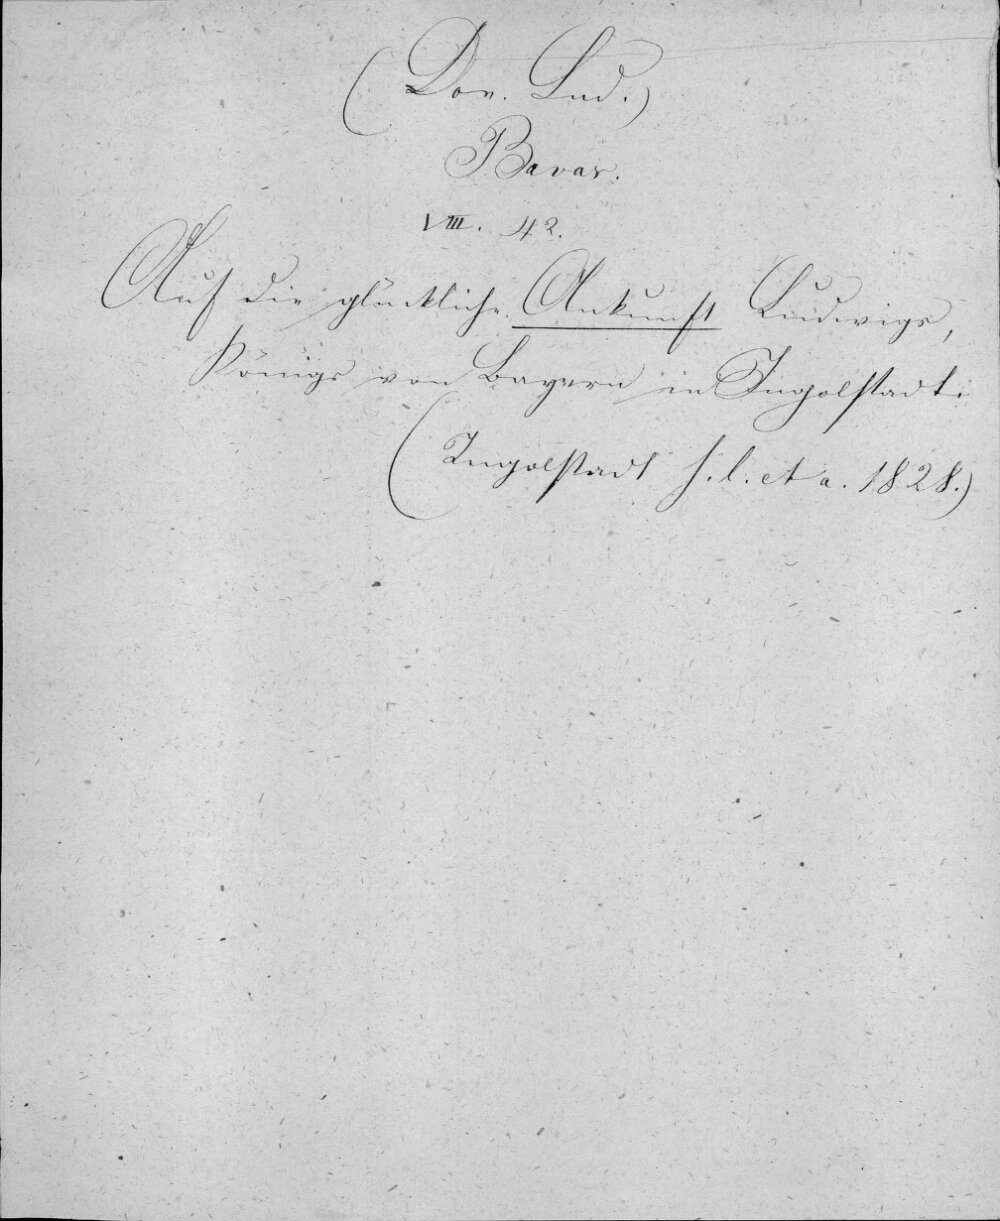 (Don. Lud.)
Bavar.
VIII. 42.
Auf die glückliche Ankunft Ludwigs,
Königs von Bayern in Ingolstadt.
(Ingolstadt s. l. et a. 1828.)